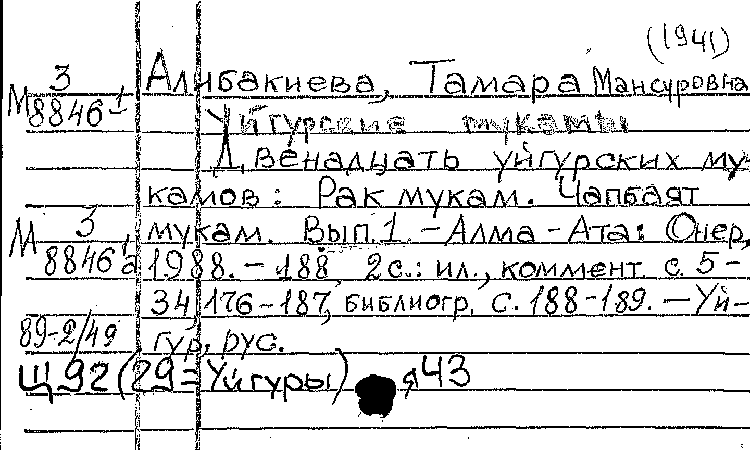 (1941)
М 3/8846-1 Алибакиева, Тамара Мансуровна
Уйгурские мукамы
Двенадцать уйгурских му-
камов: Рак мукам. Чапбаят
М 3/8846а мукам. Вып.1. - Алма - Ата: Онер,
1988. - 188, 2с.: ил., коммент. с. 5-
34, 176-187, библиогр. с. 188-189. - Уй-
89-2/49 гур, рус.
Щ92(29=Уйгуры) я43